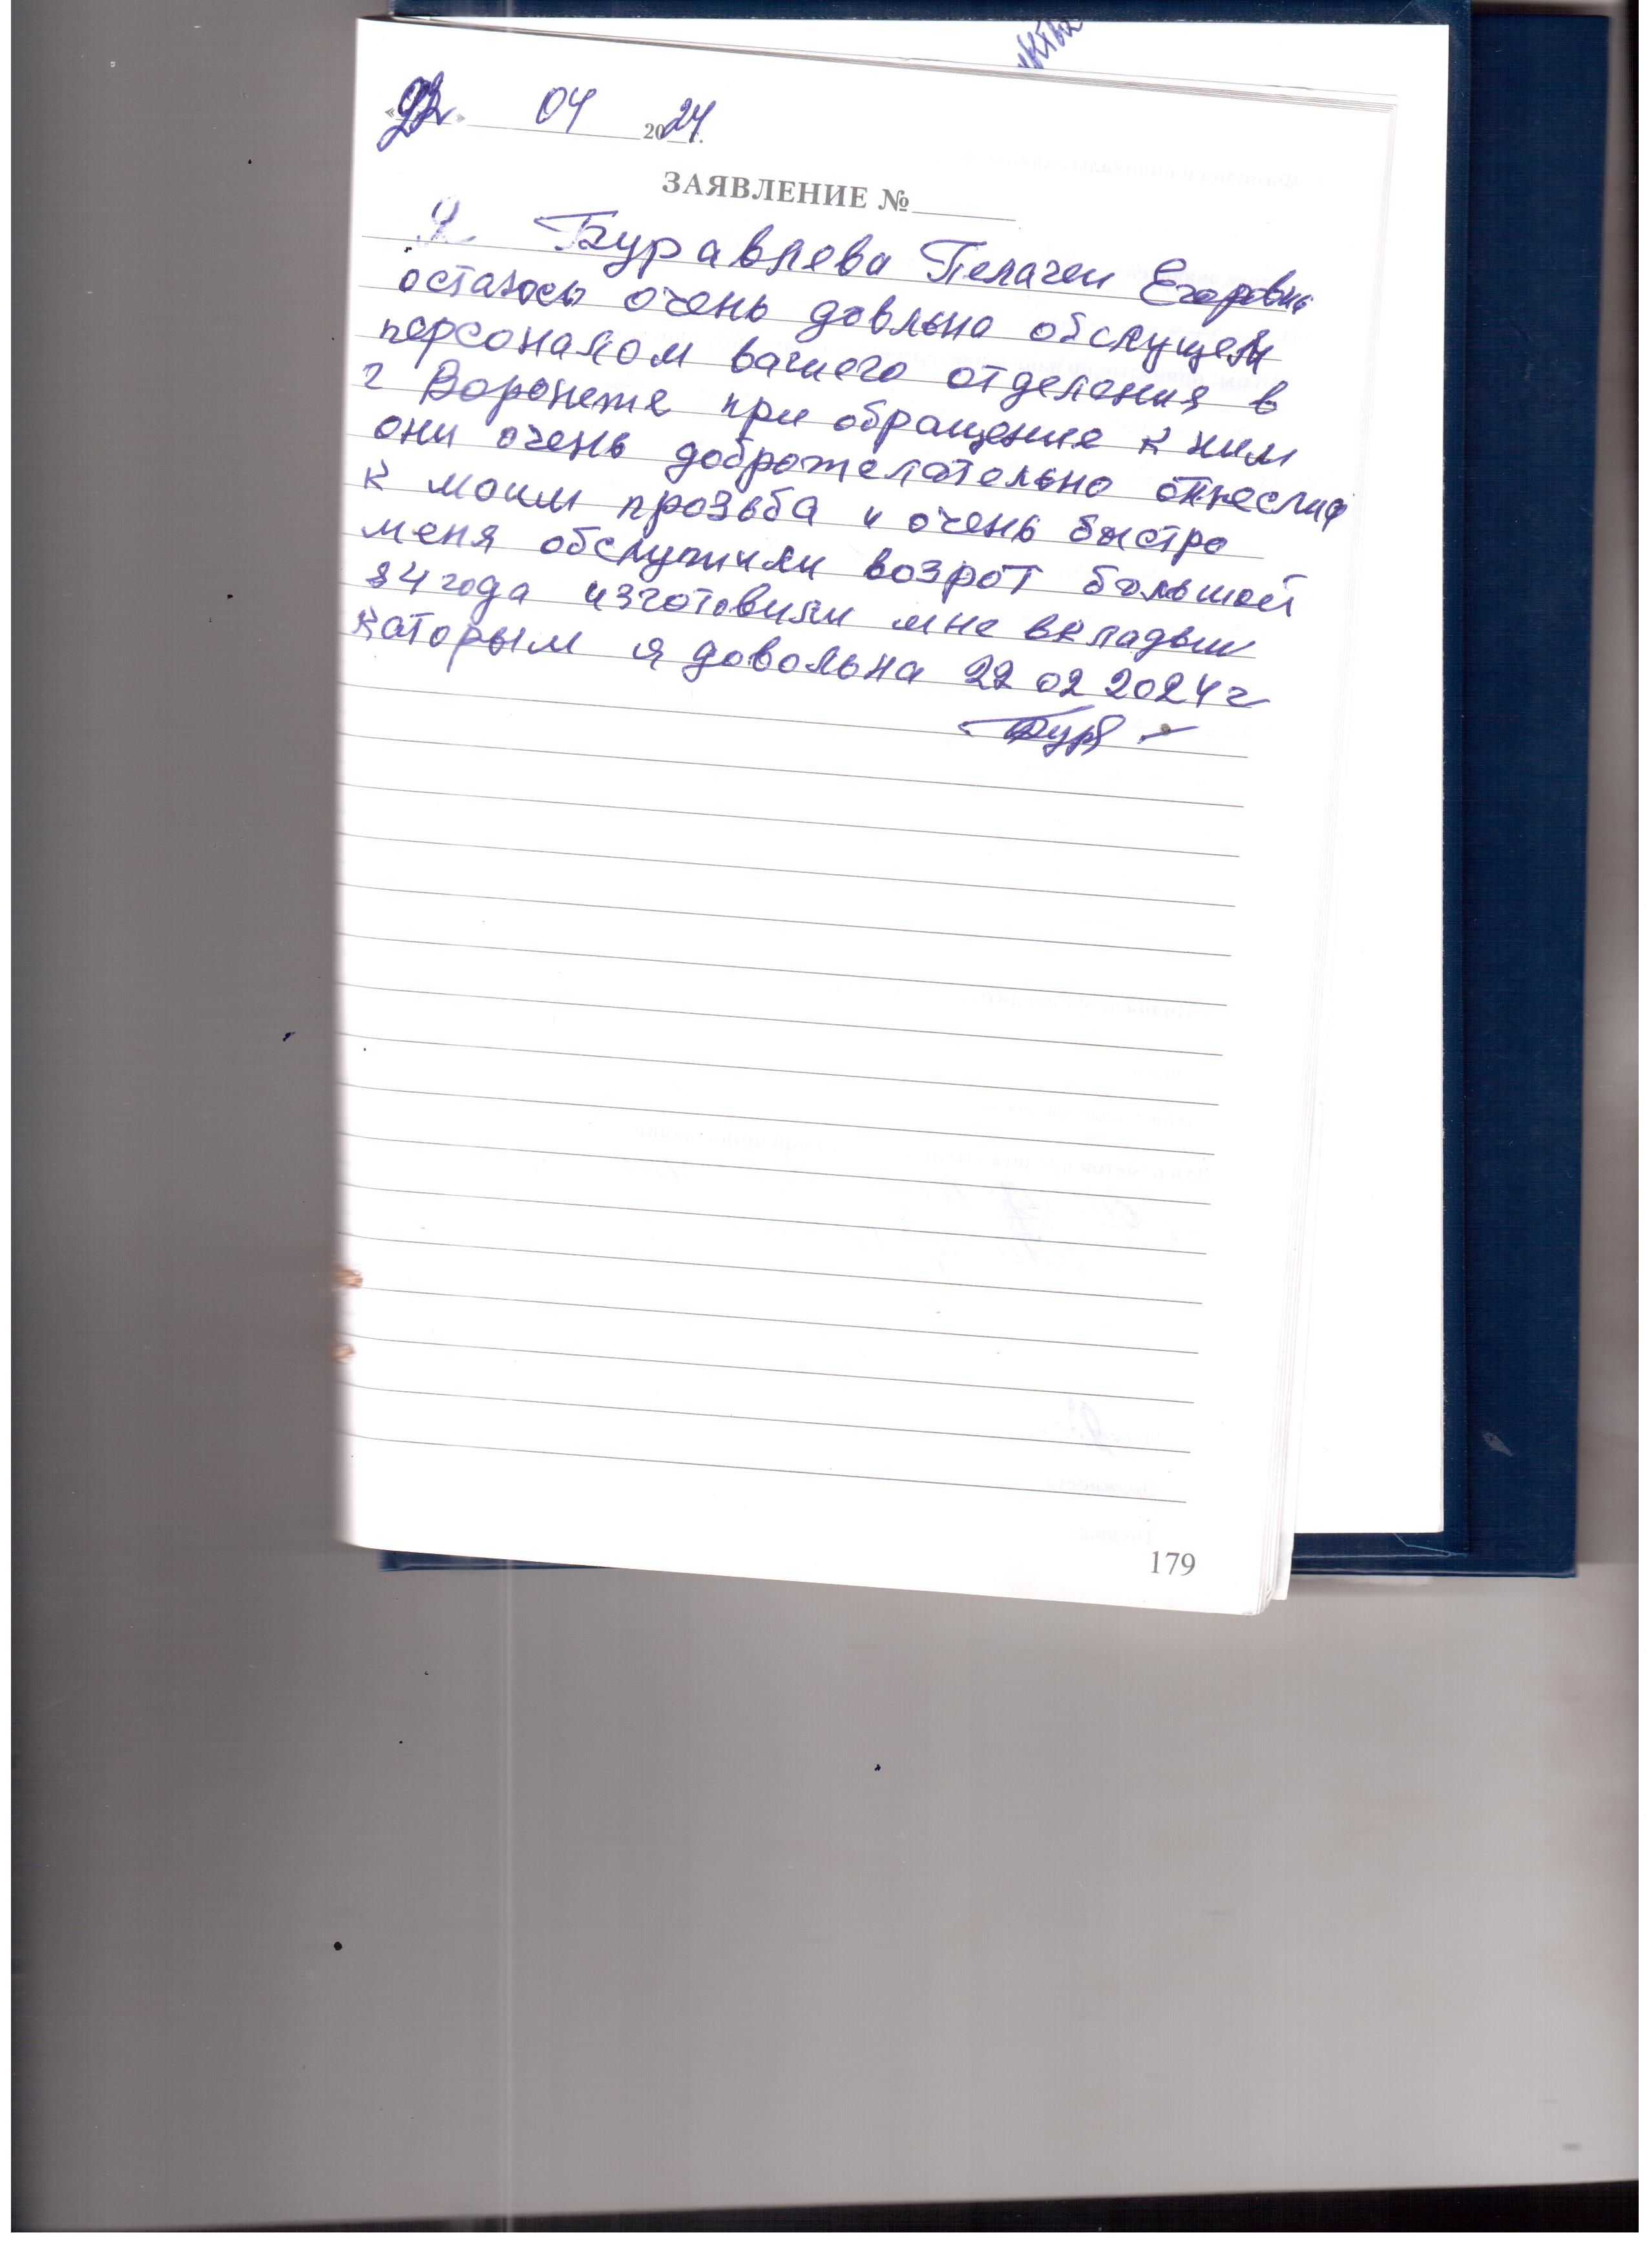 «22» 04 2024 г.
ЗАЯВЛЕНИЕ №
Я Буравлева Пелагеи Егоровны
осталось очень довльна обслущем
персоналом вашего отделения в
г Воронеже при обращение к ним
они очень доброжелательно
к моим прозьба и очень быстро
меня обслужили возрот большой
84 года изготовили мне вкладыш
каторым я довольна 22 02 2024 г
179